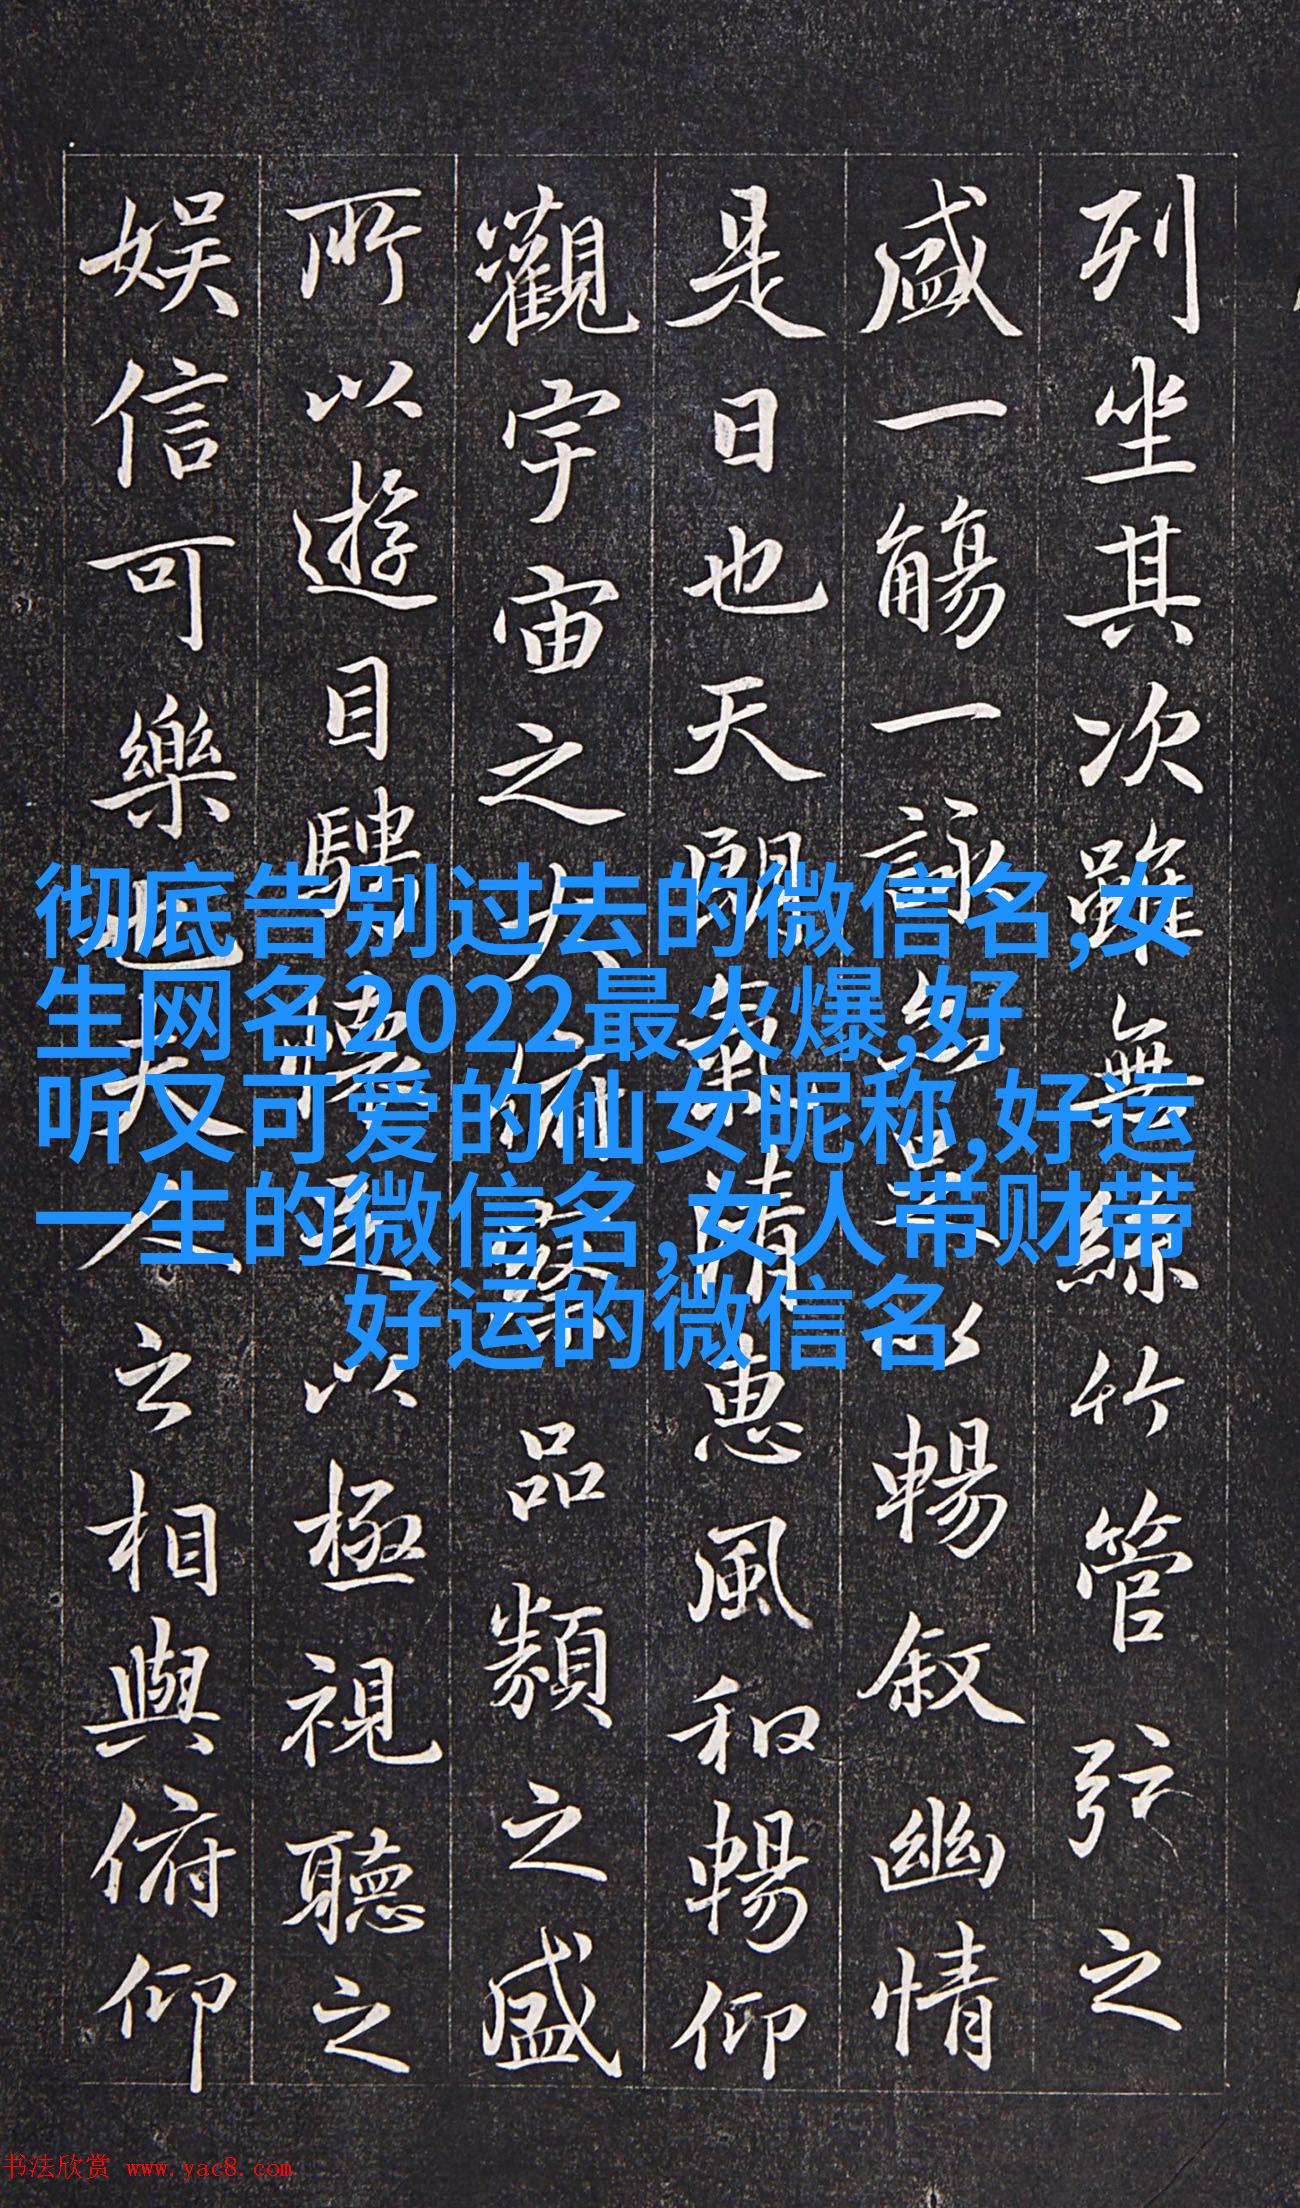 列坐其次雖無絲竹管弦之
盛一觴一詠亦足以暢敘幽情
是日也天朗氣清惠風和暢仰
觀宇宙之大俯察品類之盛
所以遊目騁懷足以極視聽之
娛信可樂也夫人之相與俯仰
彻底告别过去的微信名,女
生网名2022最火爆,好
听又可爱的仙女昵称,好运
一生的微信名,女人带财带
好运的微信名
书法欣赏 www.yac8.com